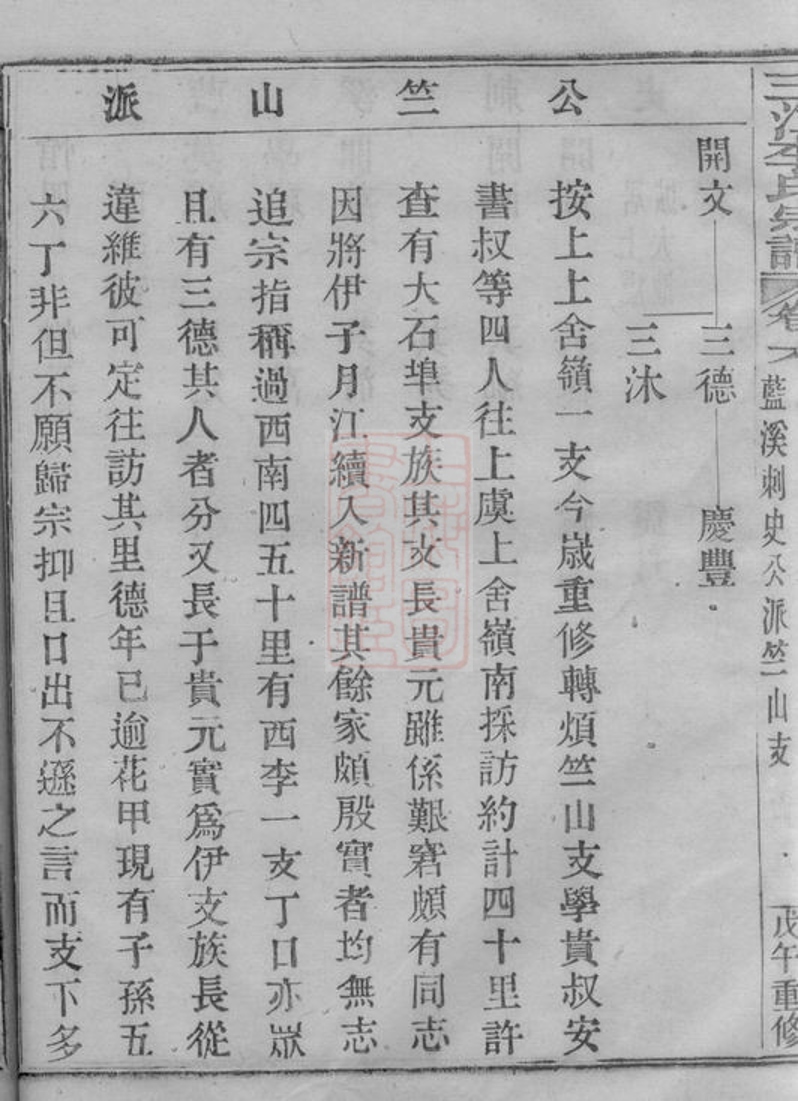 三江李氏宗譜 卷 藍溪刺史公派竺山支 戊午重修
公竺山派
開文 三德 慶豐
三沐
按上上舍嶺一支今歲重修轉煩竺山支學貴叔安
書叔等四人往上虞上舍嶺南採訪約計四十里許
查有大石埠支族其支長貴元雖係艱窘頗有同志
因將伊子月江續入新譜其餘家頗殷實者均無志
追宗指稱過西南四五十里有西李一支丁口亦眾
且有三德其人者分又長于貴元實為伊支族長從
違維彼可定往訪其里德年已逾花甲現有子孫五
六丁非但不願歸宗抑且口出不遜之言而支下多